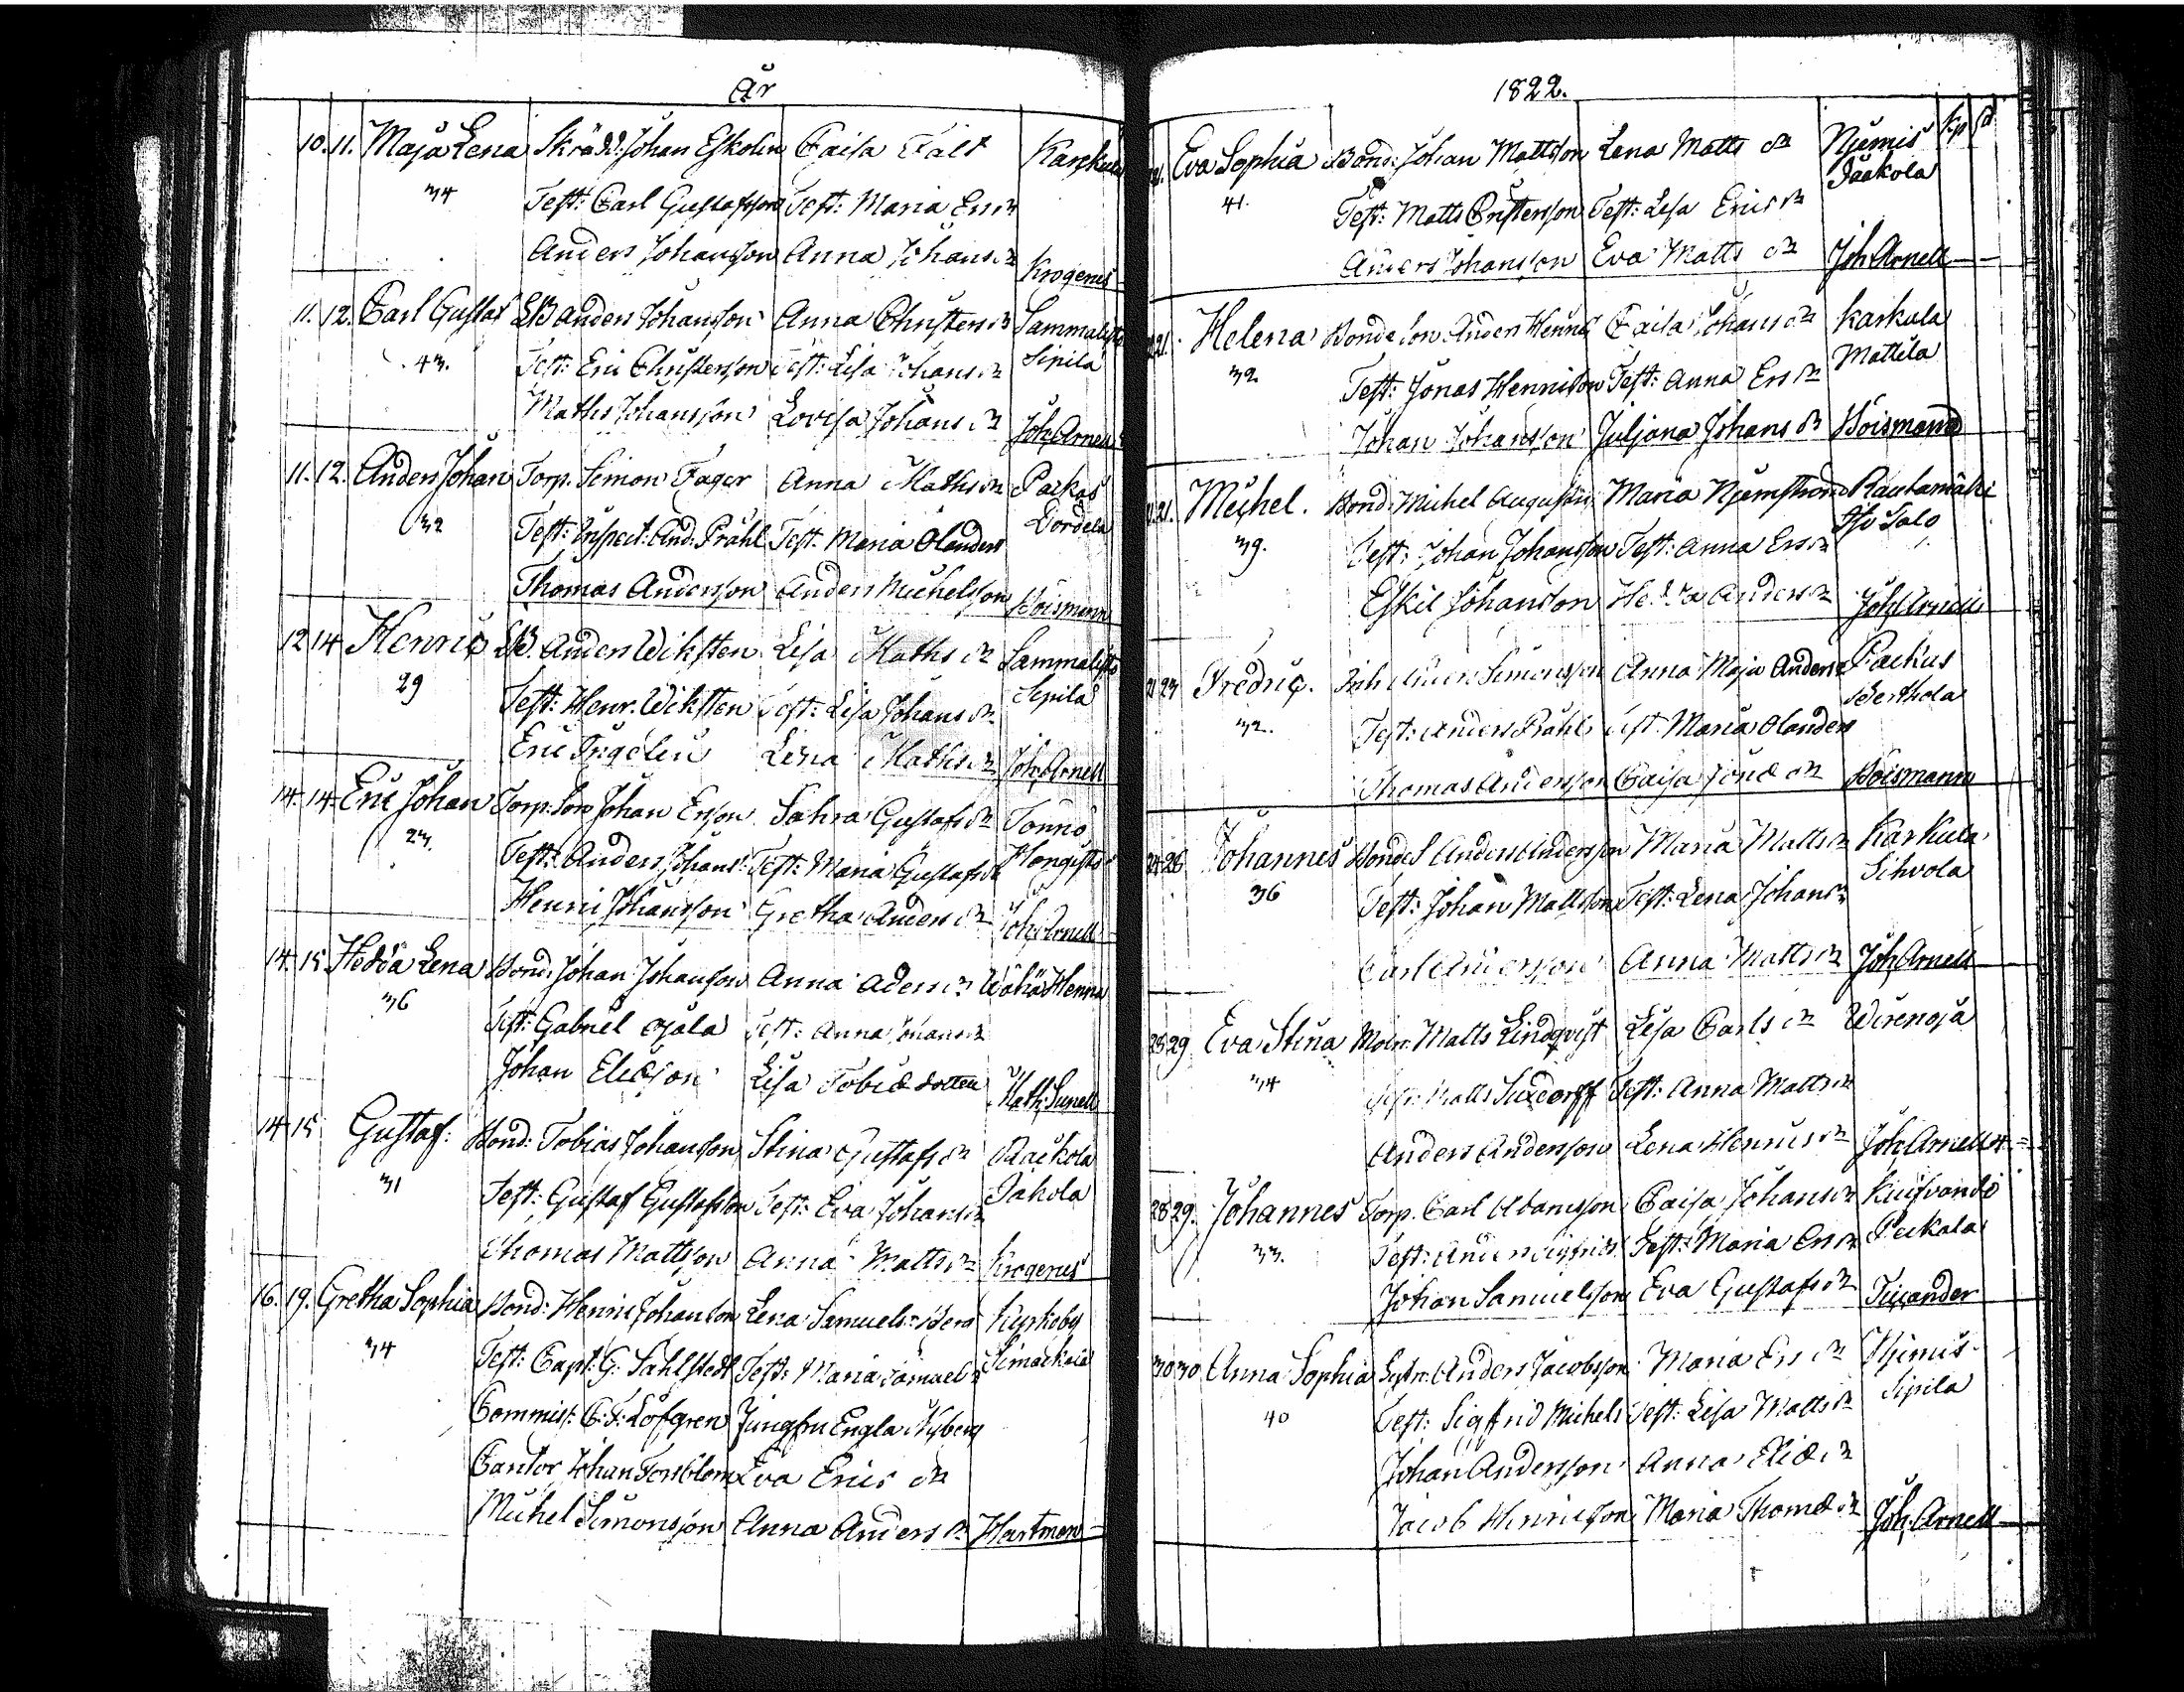 År
10. 11. Maja Lena Skrädd: Johan Eskolin Caisa Fält Karkula
34 Test: Carl Gustafsson Test: Maria Ers dr
Anders Johansson Anna Johans dr Krogerus
11. 12. Carl Gustaf LB Anders Johansson Anna Christers dr Sammalisto
43. Test: Eric Christersson Test: Lisa Johans dr Sipilä
Mathis Johansson Lovisa Johans dr Joh. Arnell
11. 12. Anders Johan Torp. Simon Fager Anna Mathis dr
32 Test: Inspect: And. Pråhl Test: Maria Olanders
Thomas Andersson Anders Michelsson Boismann
12 14 Henric LB. Anders Wiksten Lisa Mathis dr Sammalisto
29 Test: Henr. Wiksten Test: Lisa Johans dr Sipilä
Eric Ingelin Lena Mathis dr Joh. Arnell
14. 14. Eric Johan Torp. Son Johan Ersson Sahra Gustafs dr Tonno
23. Test: Anders Johans: Test: Maria Gustafs dr Hongisto
Henric Johansson Gretha Anders dr Joh. Arnell
14. 15. Hedda Lena Bond: Johan Johansson Anna Aders dr Wähä Henna
36 Test: Gabriel Ojala Test: Anna Johans dr
Johan Eliæson Lisa Tobiæ dotter Math: Sunell
14. 15 Gustaf: Bond: Tobias Johansson Stina Gustafs dr Raekola
31 Test: Gustaf Gustafsson Test: Eva Johans dr Jakola
Thomas Mattsson Anna Matts dr Krogerus
16. 19. Gretha Sophia Bond: Henric Johansson Lena Samuels: Berg Kyrkoby
34 Test: Capt: G: Sahlstedt Test: Maria Samuel dr
Commiss: C: F: Löfgren Jungfru Engla Nyberg
Cantor Johan Forsblom Eva Erics dr
Michel Simonsson Anna Anders dr Hartman
1822.
Kp
21. Eva Sophia Bond: Johan Mattsson Lena Matts dr Njemis
41. Test: Matts Christersson Test: Lisa Erics dr Jaakola
Anders Johansson Eva Matts dr Joh. Arnell
21. Helena Bonde Son Anders Henrics Caisa Johans dr Karkula
32. Test: Jonas Henricson Test: Anna Ers dr Mattila
Johan Johansson Juljana Johans dr Boismann
21. Michel. Bond: Michel Augustin Maria Njemström Rautamäki
39. Test: Johan Johansson Test: Anna Ers dr Iso Salo
Eskil Johansson Hedda Anders dr Joh. Arnell
23 Fredric. Anders Simonsson Anna Maja Anders dr Paikus
32. Test: Anders Pråhl Test: Maria Olanders Berthola
Thomas Andersson Caisa Jonæ dr Boismann
28 Johannes Bonde S Anders Andersson Maria Matts dr Karkula
36 Test: Johan Mattsson Test: Lena Johans dr Sihvola
Carl Andersson Anna Matts dr Joh. Arnell
28 29 Eva Stina Matts Lindqvist Lisa Carls dr Wirenoja
34 Test: Matts Suxdorff Test: Anna Matts dr
Anders Andersson Lena Henrics dr Joh. Arnell
28 29. Johannes Torp. Carl Adamsson Caisa Johans dr
33. Test: Anders Sigfrids Test: Maria Ers dr Peckala
Johan Samuelsson Eva Gustafs dr Ticcander
30 30 Anna Sophia Sytn. Anders Jacobsson Maria Ers dr Njemis
40 Test: Sigfrid Michels: Test: Lisa Matts dr Sipila
Johan Andersson Anna Eliæ dr
Jacob Henricsson Maria Thomæ dr Joh. Arnell